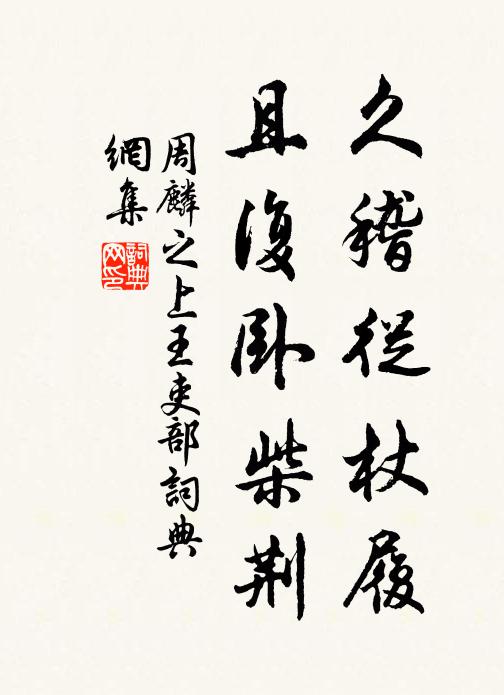 久稽從杖履
且復臥柴荆
周麟之上王吏部詞典
網集
詞典
网印